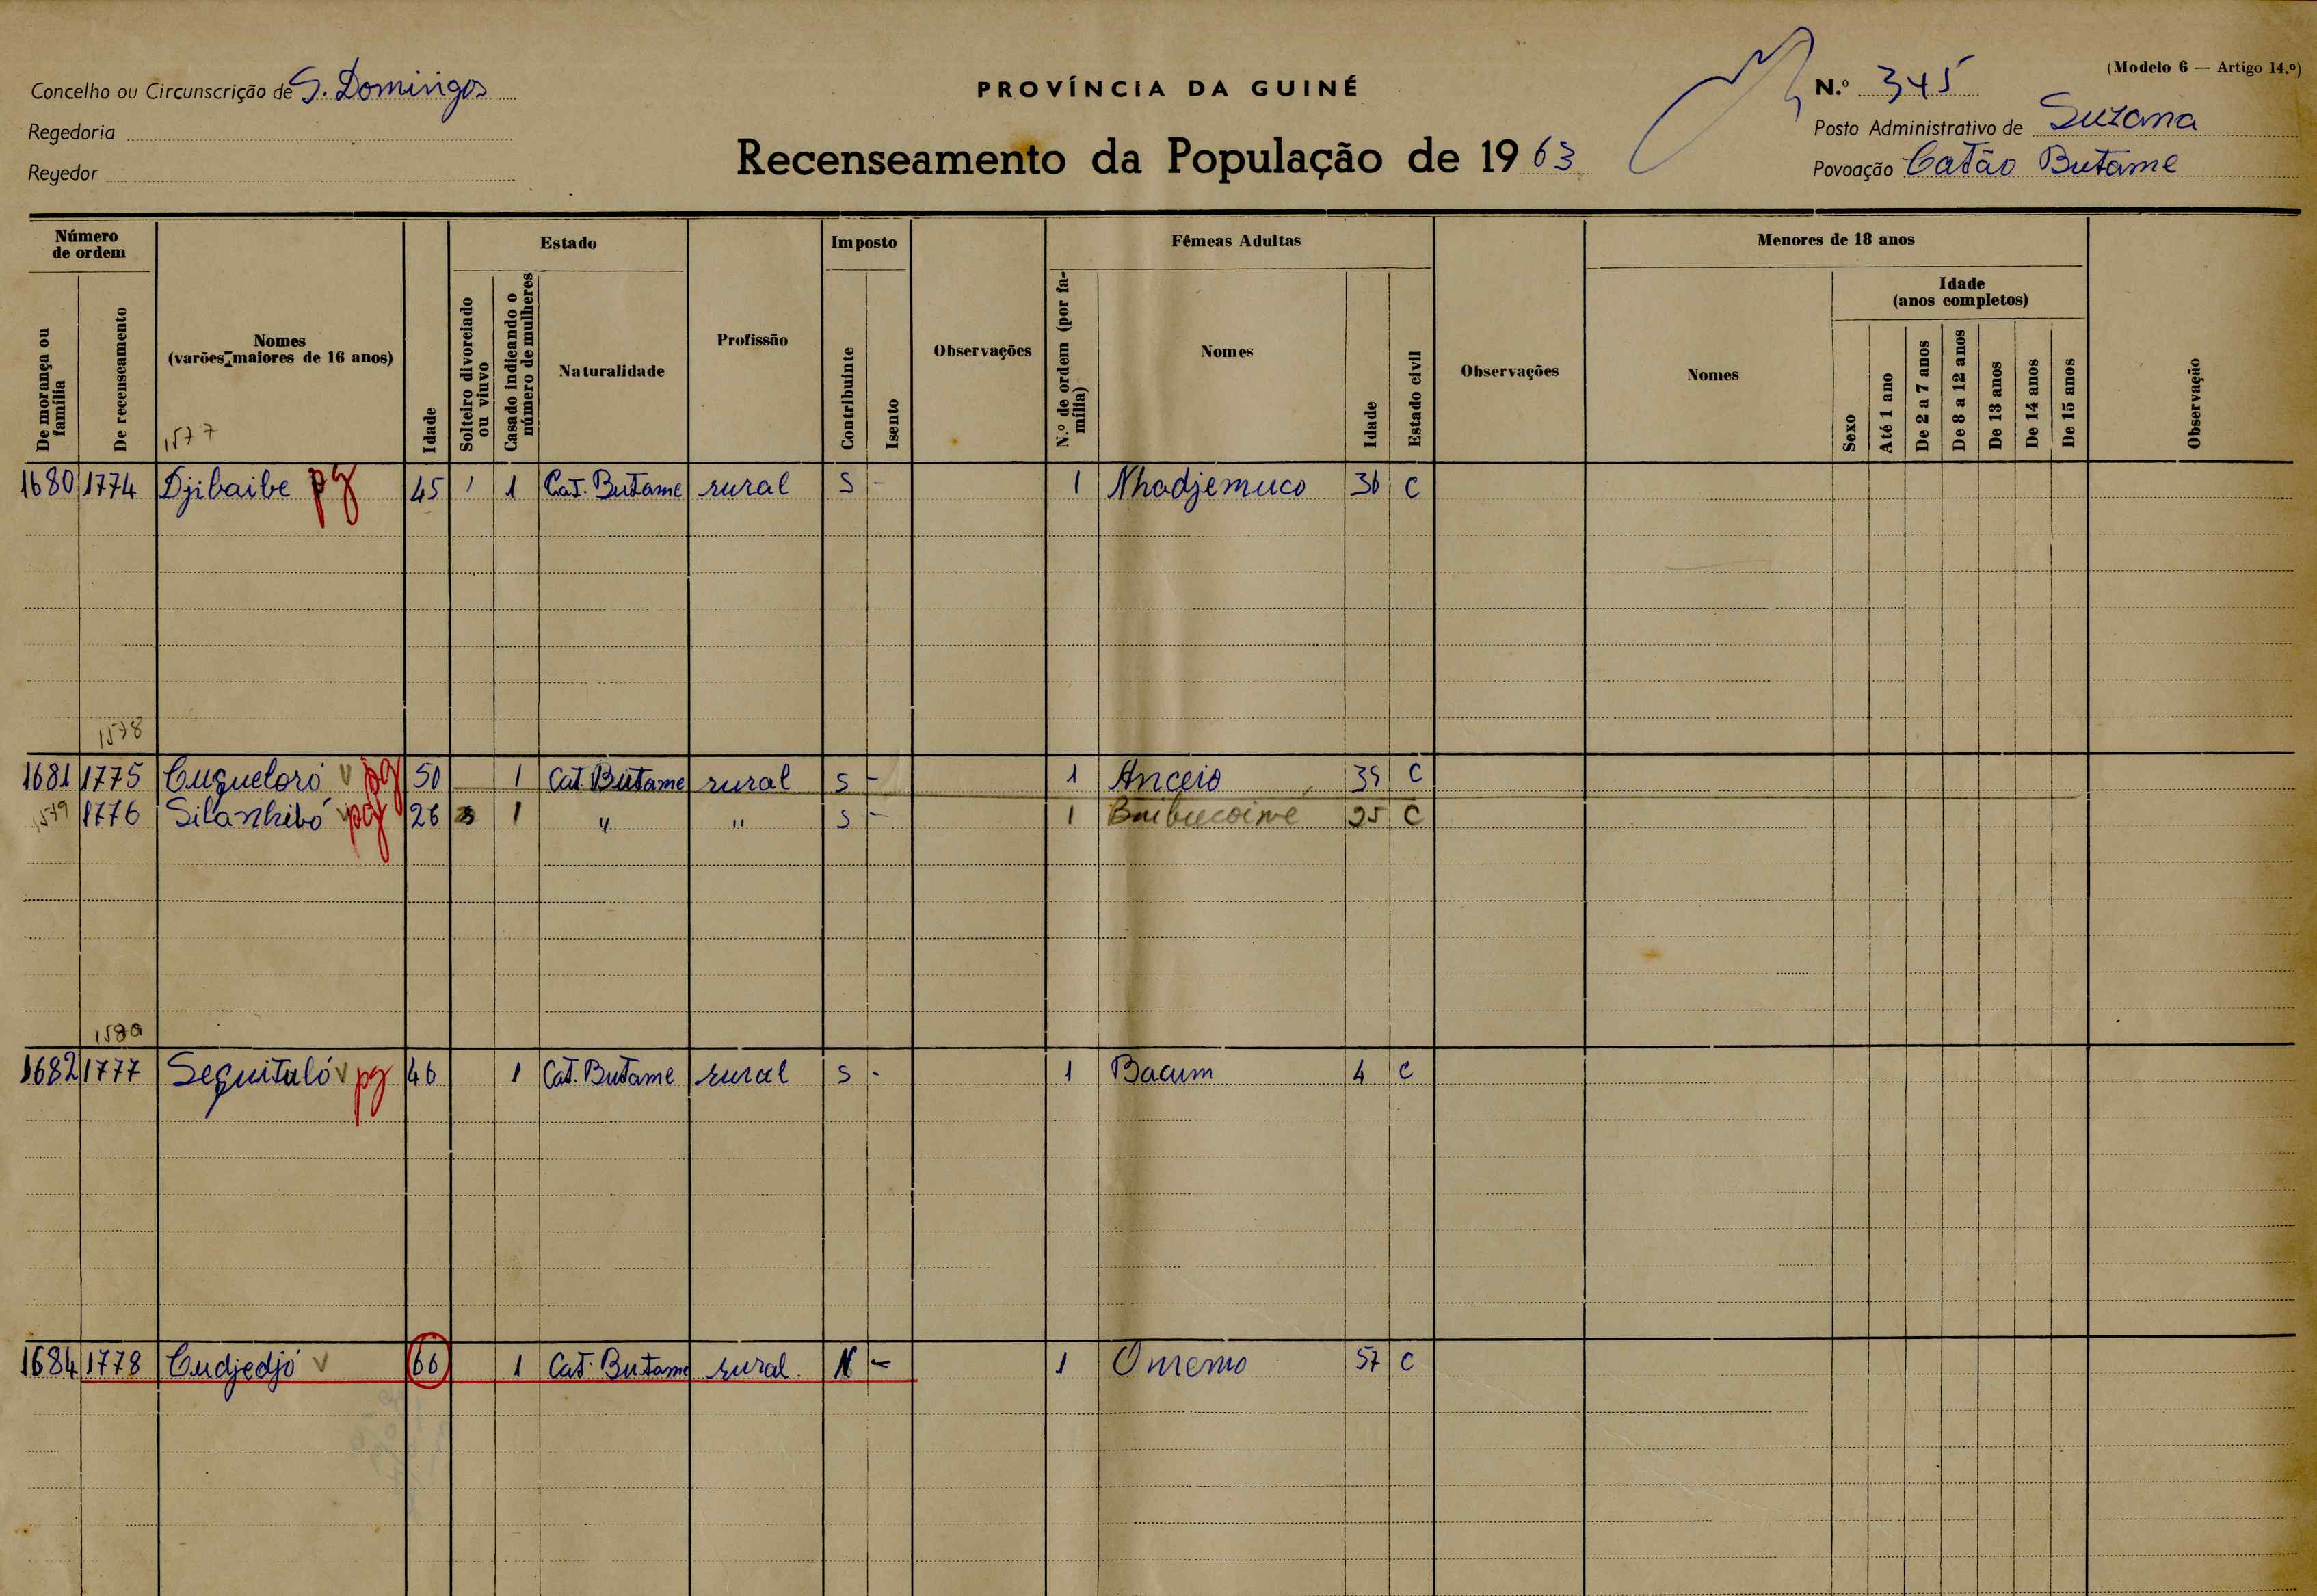 (Modelo 6 — Artigo 14.º)
Concelho ou Circunscrição de S. Domingos
PROVÍNCIA DA GUINÉ
N.º 345
Regedoria
Posto Administrativo de Suzana
Recenseamento da População de 1963
Regedor
Povoação Catão Butame
Número de ordem
De morança ou família
De recenseamento
Nomes
(varões maiores de 16 anos)
1577
Idade
Estado
Solteiro divorciado ou viuvo
Casado indicando o número de mulheres
Naturalidade
Profissão
Imposto
Contribuinte
Isento
Observações
Fêmeas Adultas
N.º de ordem (por família)
Nomes
Idade
Estado civil
Observações
Menores de 18 anos
Nomes
Sexo
Idade
(anos completos)
Até 1 ano
De 2 a 7 anos
De 8 a 12 anos
De 13 anos
De 14 anos
De 15 anos
Observação
1680 1774 Djibaibe pg 45 1 1 Cat. Butame rural S - 1 Nhadjemuco 36 C
1578
1681 1775 Cuqueloró V pg 50 1 Cat. Butame rural S - 1 Anceio 39 C
1579 1776 Silanhibó V pg 26 1 " " S - 1 25 C
1580
1682 1777 Sequitaló V pg 46 1 Cat. Butame rural S - 1 Bacum 4 C
1684 1778 Cudjedjó V 66 1 Cat. Butame rural. N - 1 57 C